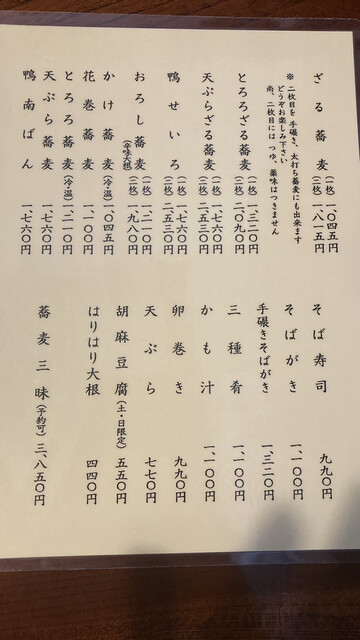 ざる蕎麦 (一枚) 一、〇四五円
(二枚) 一、八一五円
※ 二枚目を手碾き、太打ち蕎麦にも出来ます
どうぞお楽しみ下さい
尚、二枚目には つゆ、薬味はつきません
とろろざる蕎麦 (一枚) 一、三二〇円
(二枚) 二、〇九〇円
天ぷらざる蕎麦 (一枚) 一、七六〇円
(二枚) 二、五三〇円
鴨せいろ (一枚) 一、七六〇円
(二枚) 二、五三〇円
おろし蕎麦 (辛味大根) (一枚) 一、二一〇円
(二枚) 一、九八〇円
かけ蕎麦 (冷温) 一、〇四五円
花巻蕎麦 一、一〇〇円
とろろ蕎麦 (冷温) 一、二一〇円
天ぷら蕎麦 一、七六〇円
鴨南ばん 一、七六〇円
そば寿司 九九〇円
そばがき 一、一〇〇円
手碾きそばがき 一、三二〇円
三種肴 一、一〇〇円
かも汁 一、一〇〇円
卵巻き 九九〇円
天ぷら 七七〇円
胡麻豆腐 (土・日限定) 五五〇円
はりはり大根 四四〇円
蕎麦三昧 (予約可) 三、八五〇円